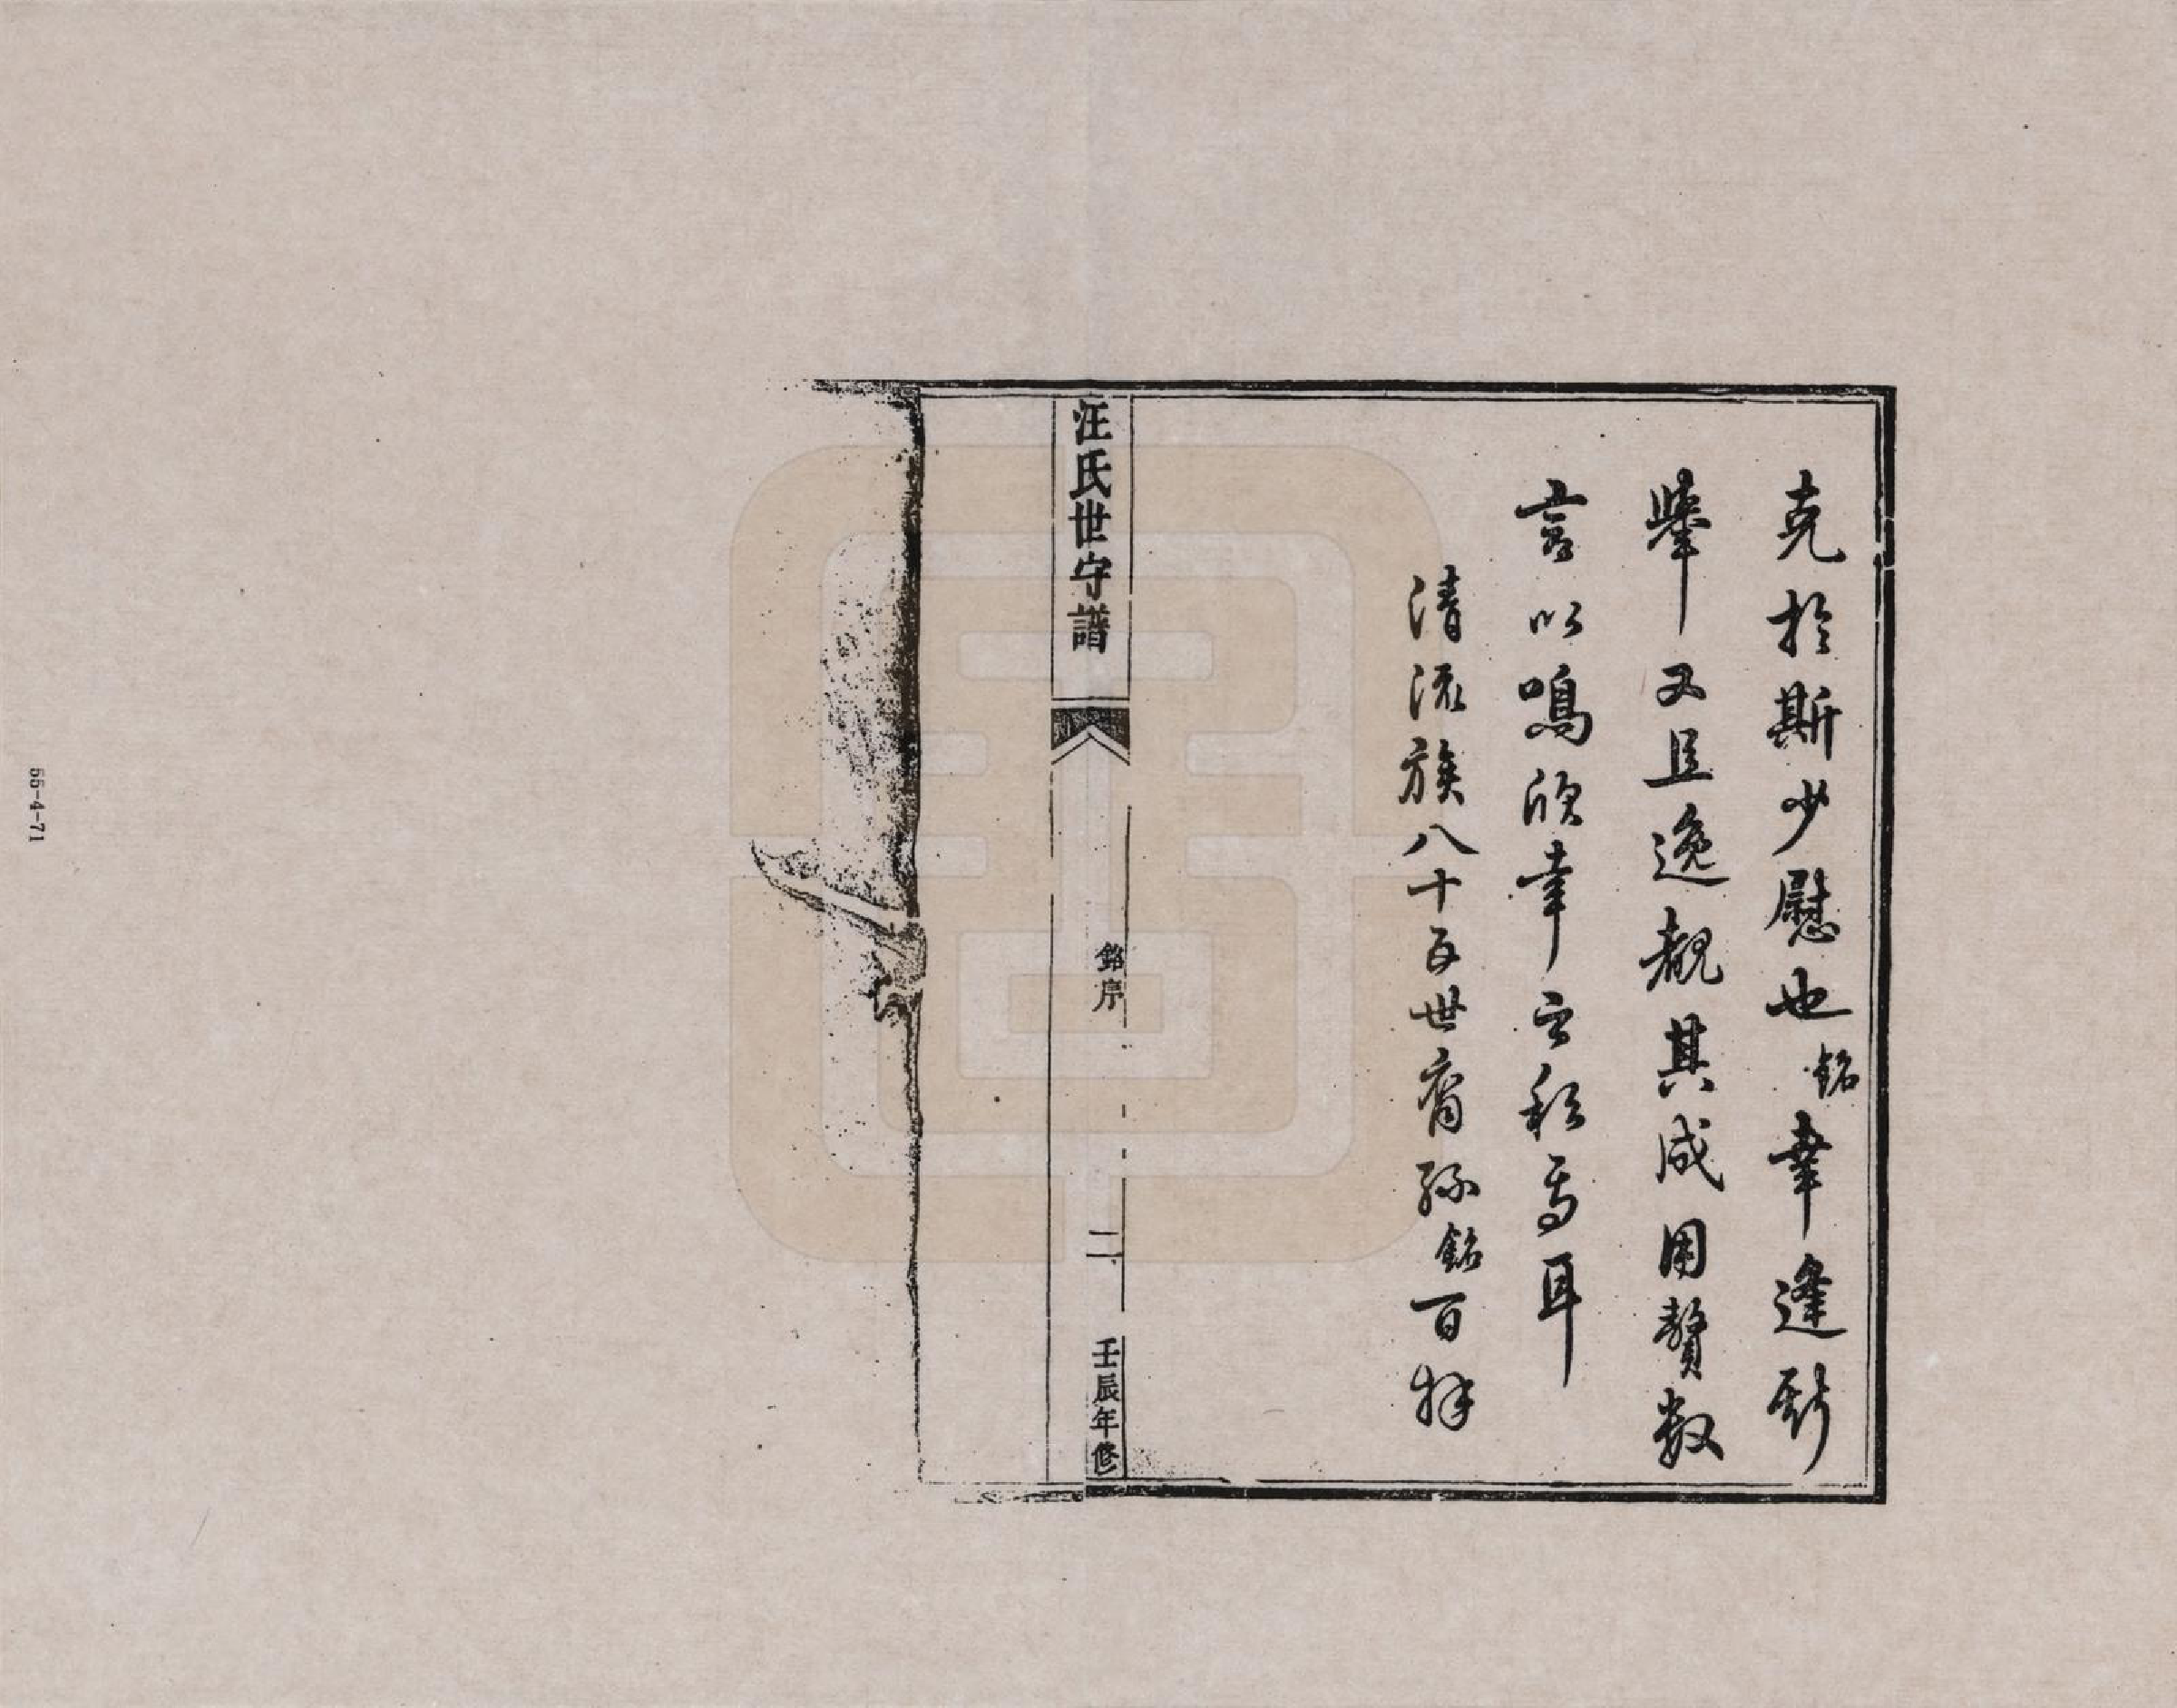 克於斯少慰也銘幸逢斯
舉又且逸覩其成用贅數
言以鳴欣幸云稱焉耳
清流族八十五世裔孫銘百拜
汪氏世守譜
銘序
二
壬辰年修
55-4-71